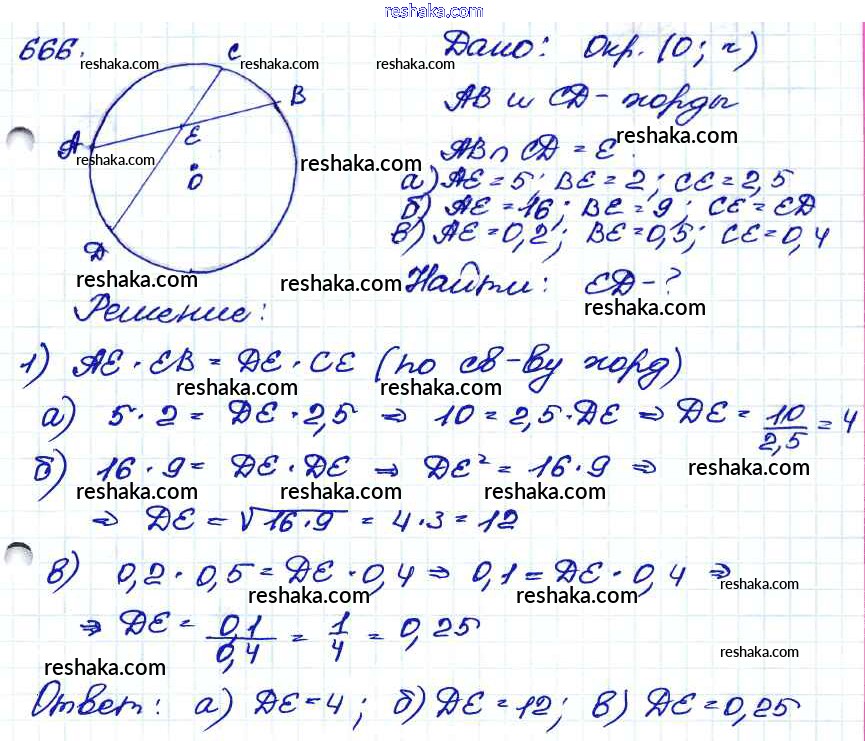 reshaka.com
666.
Дано: Окр. (O; r)
AB и CD - хорды
AB ∩ CD = E.
а) AE = 5; BE = 2; CE = 2,5
б) AE = 16; BE = 9; CE = ED
в) AE = 0,2; BE = 0,5; CE = 0,4
Найти: ED - ?
C
B
A
E
O
D
reshaka.com
reshaka.com
reshaka.com
reshaka.com
reshaka.com
reshaka.com
reshaka.com
reshaka.com
reshaka.com
Решение:
1) AE · EB = DE · CE (по св-ву хорд)
reshaka.com reshaka.com
а) 5 · 2 = DE · 2,5 ⇒ 10 = 2,5 · DE ⇒ DE = 10/2,5 = 4
reshaka.com reshaka.com
б) 16 · 9 = DE · DE ⇒ DE² = 16 · 9 ⇒
reshaka.com reshaka.com reshaka.com
⇒ DE = √16 · 9 = 4 · 3 = 12
в) 0,2 · 0,5 = DE · 0,4 ⇒ 0,1 = DE · 0,4 ⇒
reshaka.com reshaka.com reshaka.com
⇒ DE = 0,1/0,4 = 1/4 = 0,25
reshaka.com reshaka.com
Ответ: а) DE = 4; б) DE = 12; в) DE = 0,25
reshaka.com